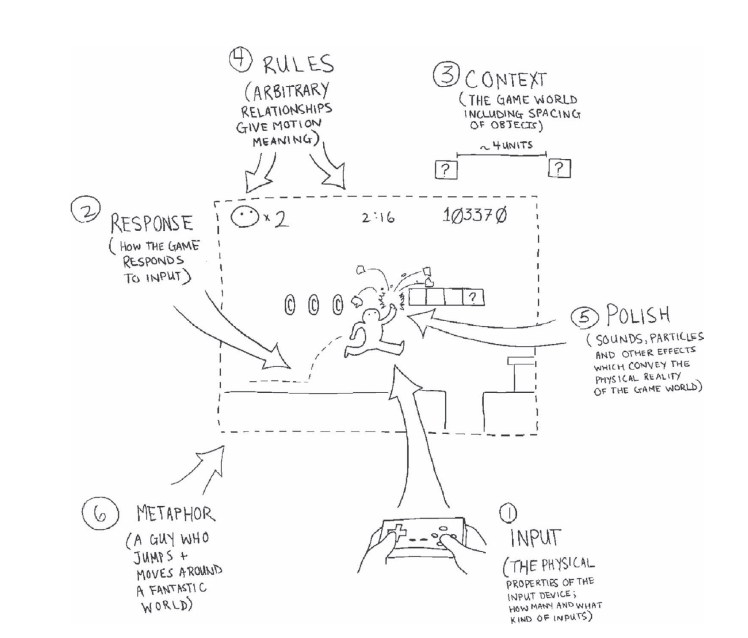 ④ RULES
(ARBITRARY
RELATIONSHIPS
GIVE MOTION
MEANING)
③ CONTEXT
(THE GAME WORLD
INCLUDING SPACING
OF OBJECTS)
~ 4 UNITS
? ?
② RESPONSE
(HOW THE GAME
RESPONDS
TO INPUT)
x 2 2:16 103370
C C C ?
⑤ POLISH
(SOUNDS, PARTICLES
AND OTHER EFFECTS
WHICH CONVEY THE
PHYSICAL REALITY
OF THE GAME WORLD)
⑥ METAPHOR
(A GUY WHO
JUMPS +
MOVES AROUND
A FANTASTIC
WORLD)
① INPUT
(THE PHYSICAL
PROPERTIES OF THE
INPUT DEVICE;
HOW MANY AND WHAT
KIND OF INPUTS)